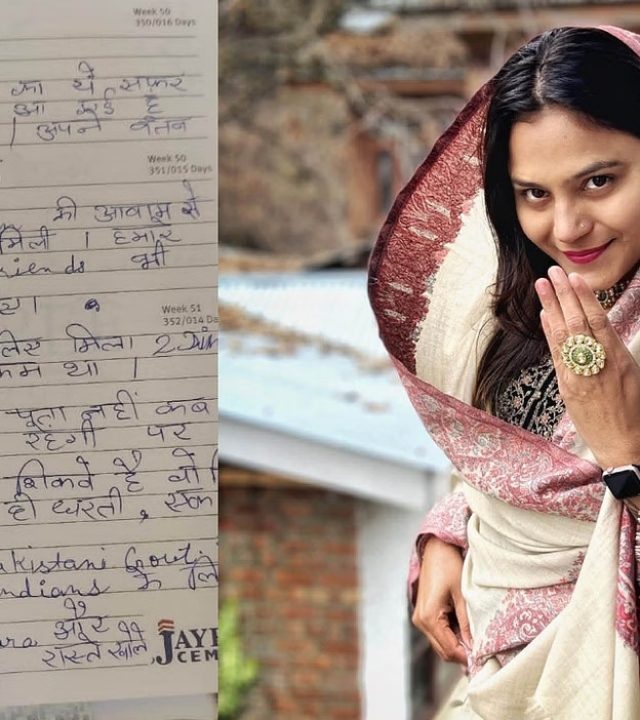 Week 50
350/016 Days
का ये सफ़र
आ कई है
। अपने वतन
Week 50
351/015 Days
की आवाम से
मिली । हमारे
riends भी
Week 51
352/014 Da
मिला 2 Din
कम था ।
पता नहीं कब
रहेगी पर
शिकवे है वो
ही धरती, एक
akistani Govt.
ndians के लि
ara और
रास्ते खोले
JAYP
CEM